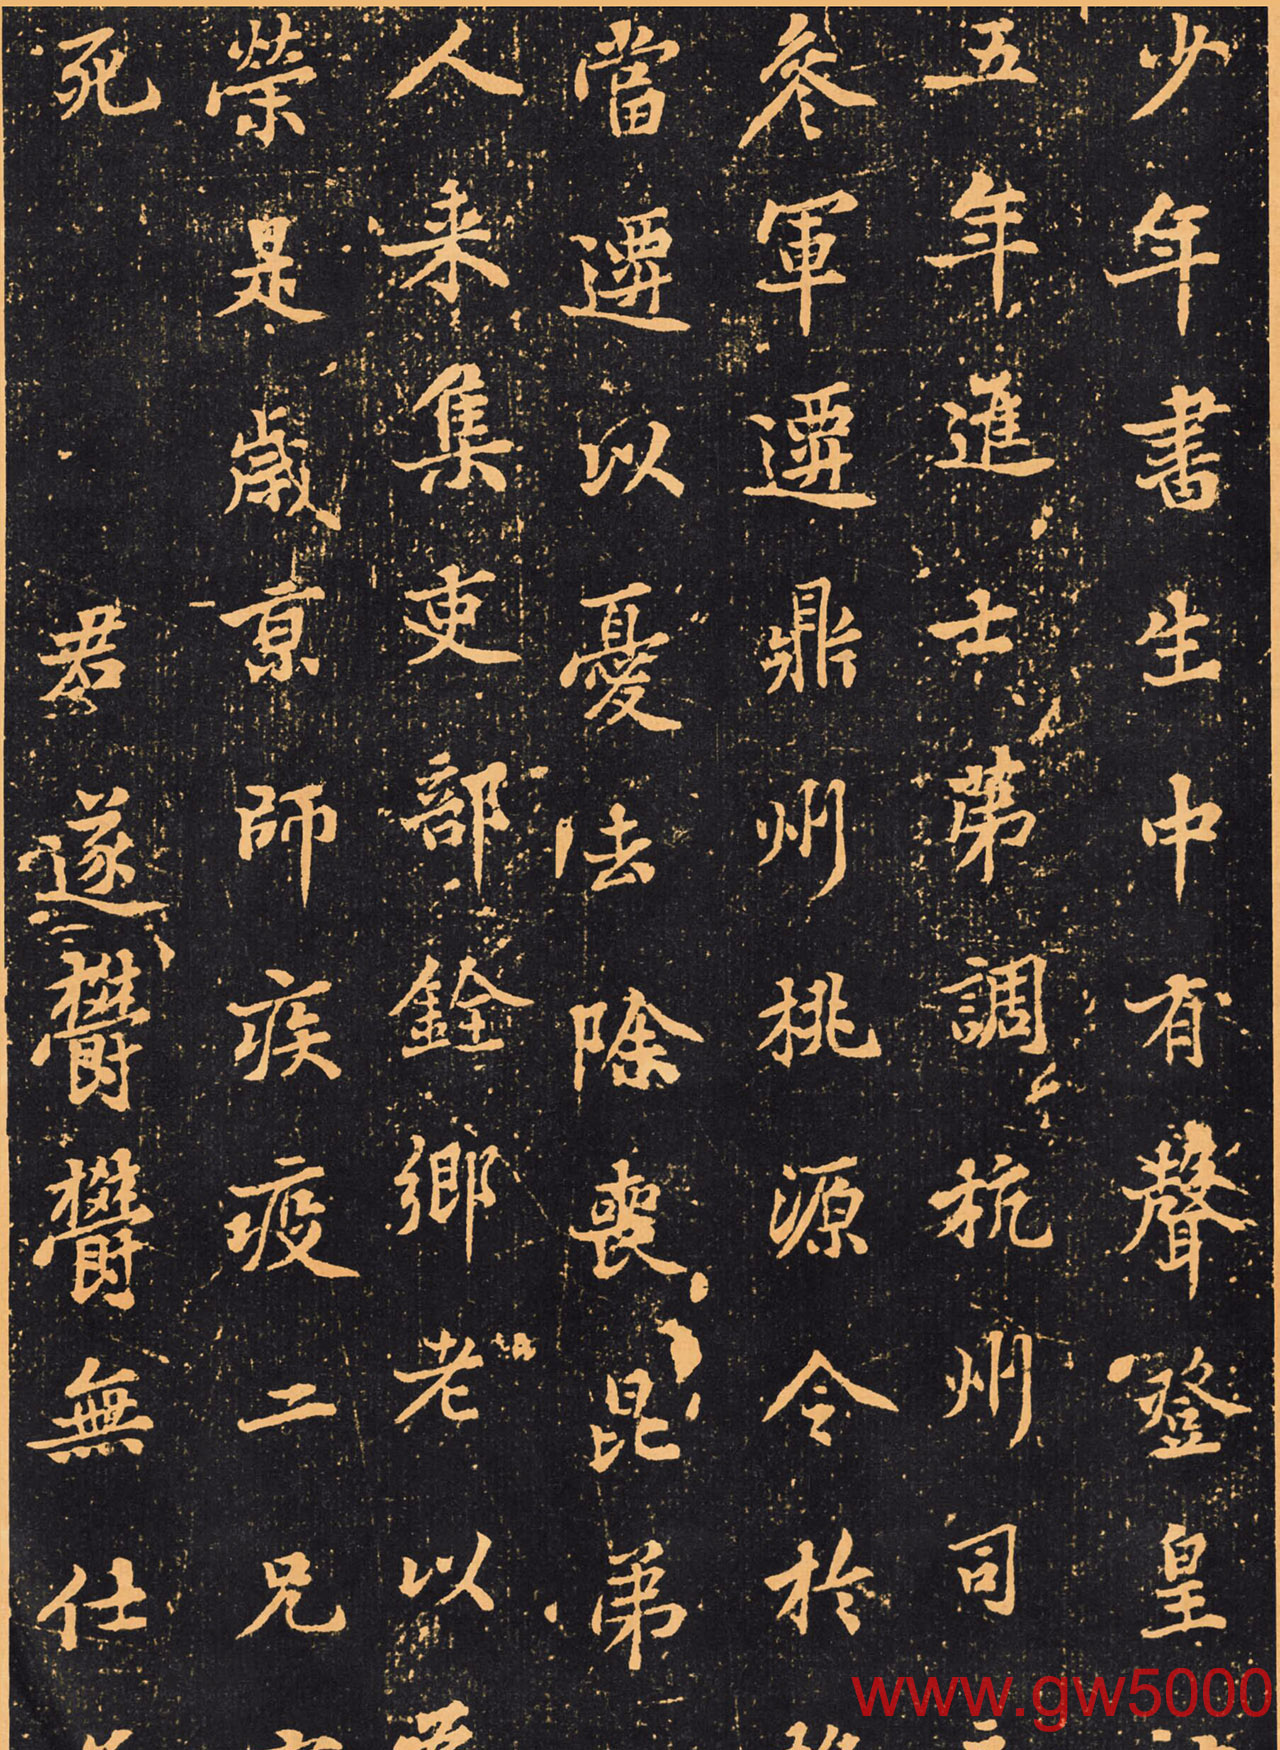 少年書生中有聲登皇
五年進士第調杭州司
參軍遷鼎州桃源令於
當遷以憂去除喪昆弟
人来集吏部銓鄉老以
榮是歲京師疾疫二兄
死 君遂鬱鬱無仕
www.gw5000